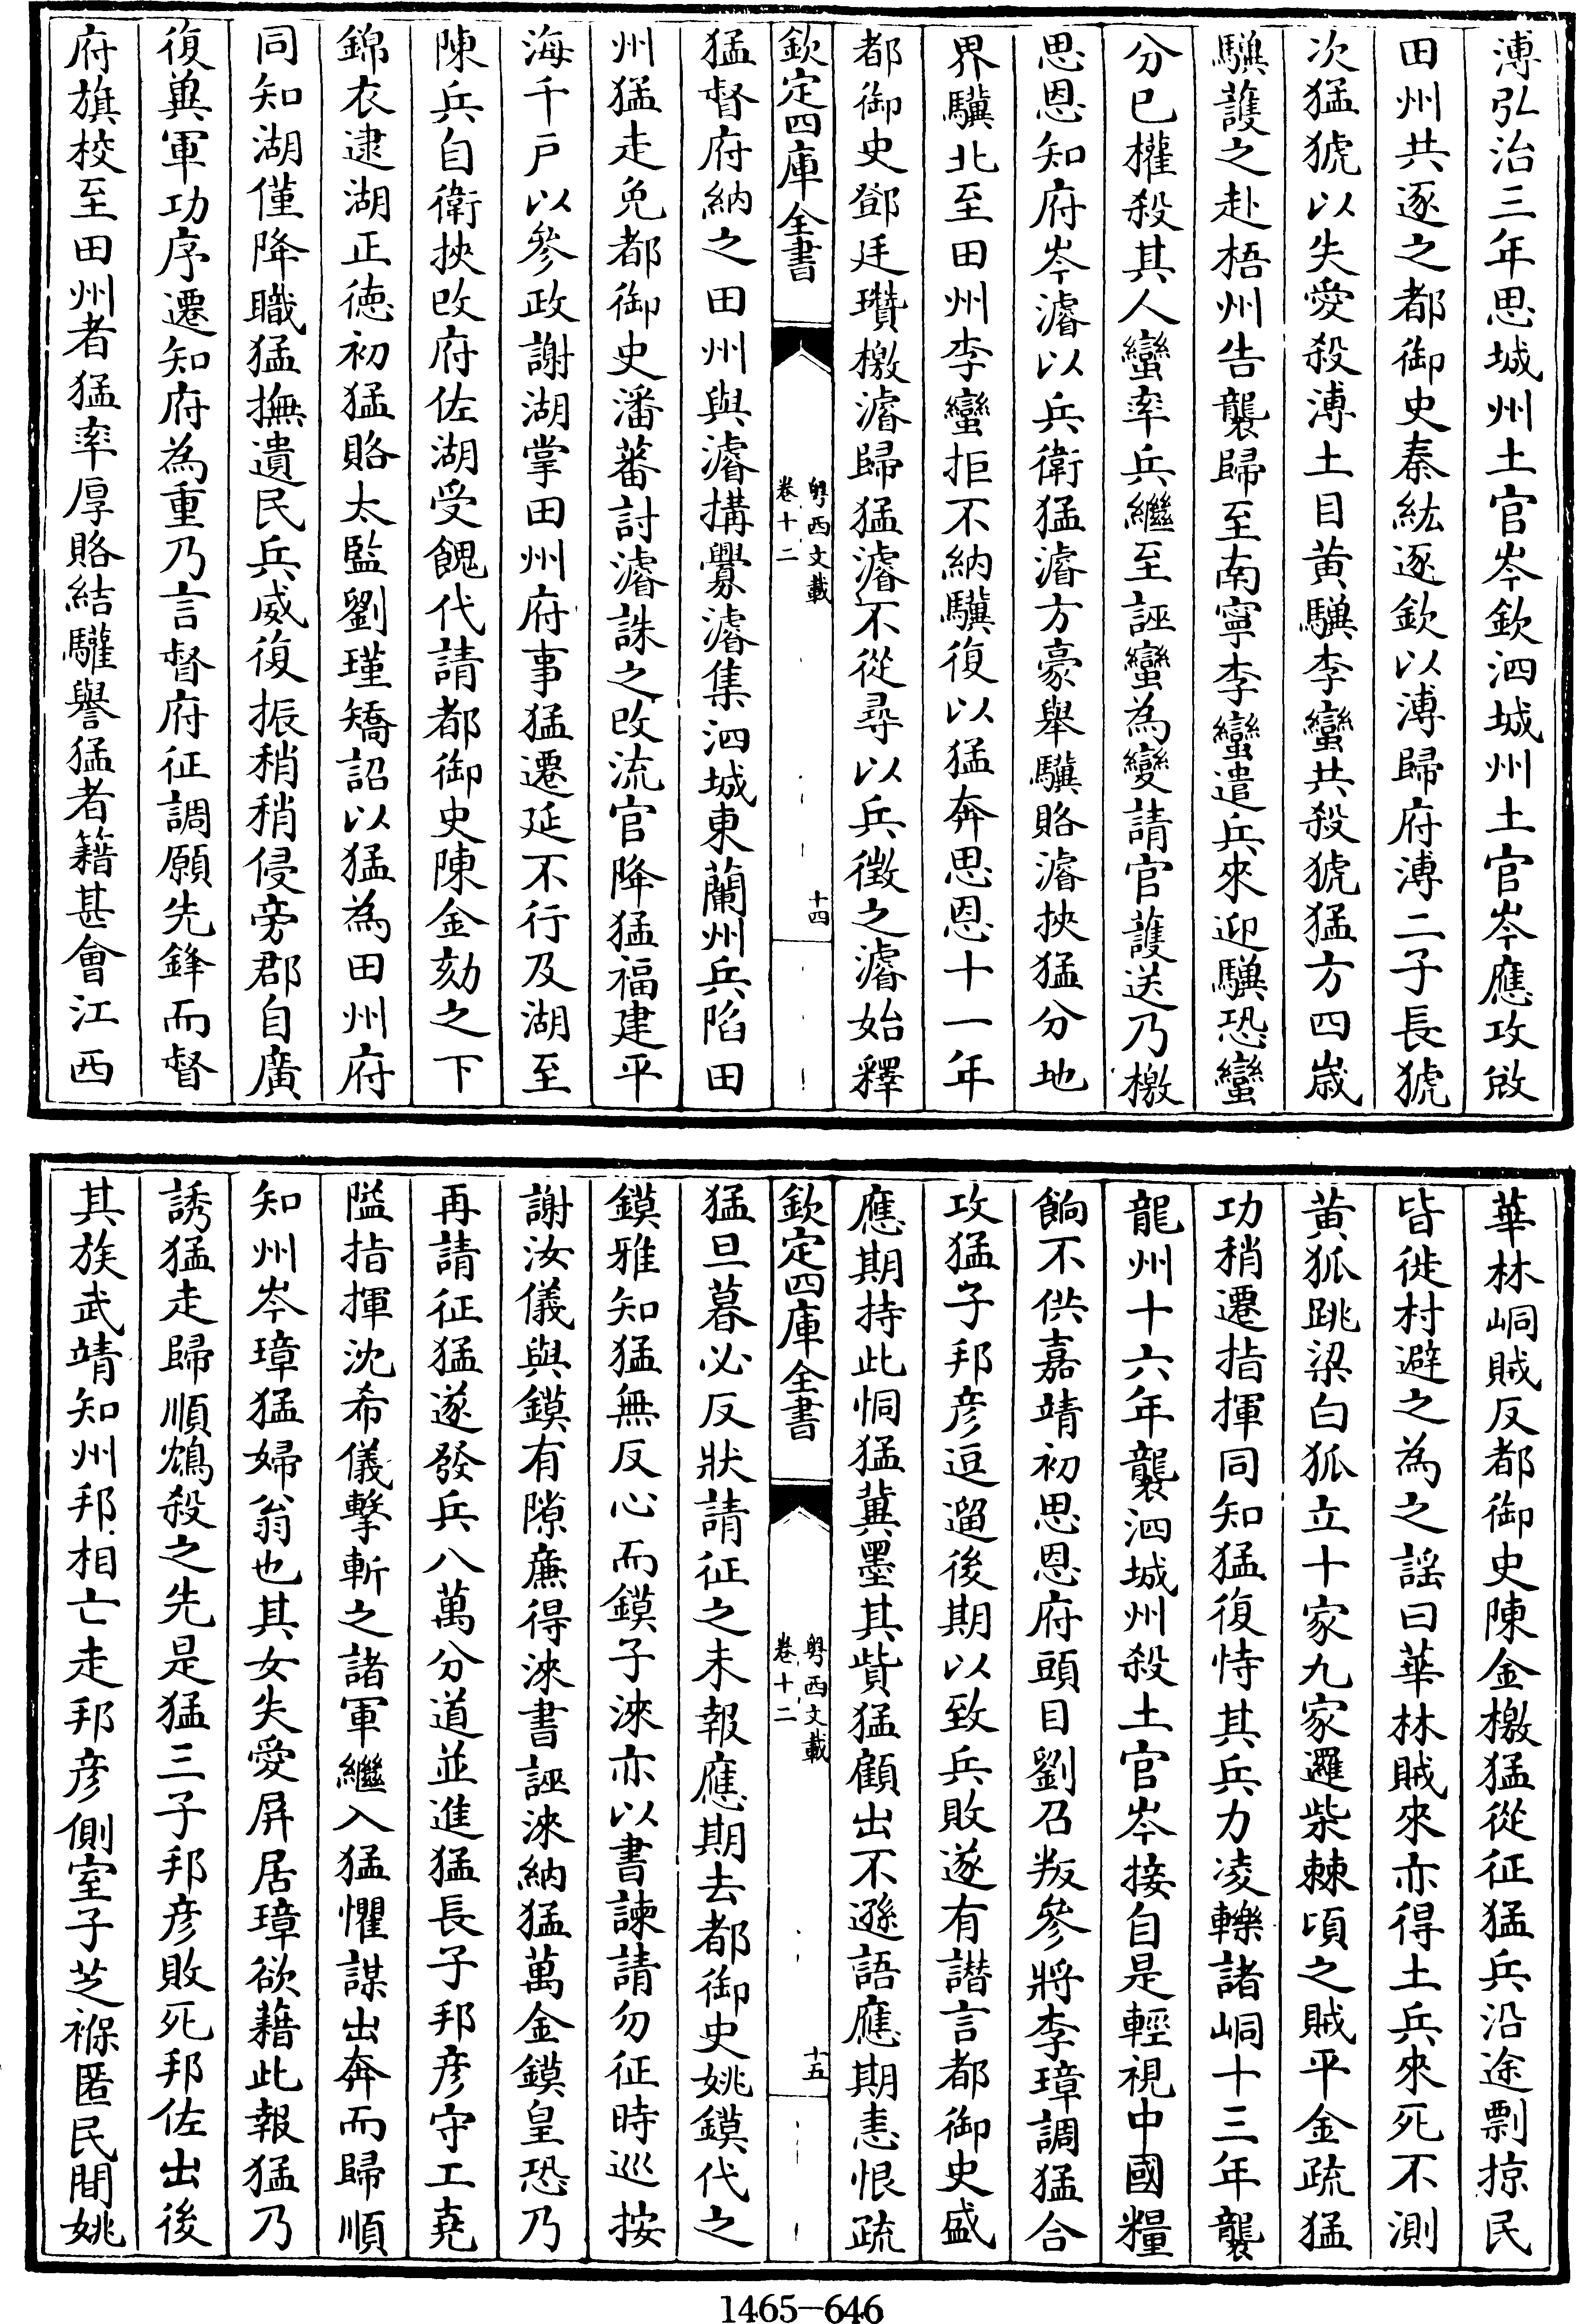 溥弘治三年思城州土官岑欽泗城州土官岑應攻敚
田州共逐之都御史秦紘逐欽以溥歸府溥二子長猇
次猛猇以失愛殺溥土目黄驥李蠻共殺猇猛方四歳
驥護之赴梧州告襲歸至南寧李蠻遣兵來迎驥恐蠻
分已權殺其人蠻率兵繼至誣蠻為變請官護送乃檄
思恩知府岑濬以兵衛猛濬方豪舉驥賂濬挾猛分地
界驥北至田州李蠻拒不納驥復以猛奔思恩十一年
都御史鄧廷瓚檄濬歸猛濬不從尋以兵徵之濬始釋
欽定四庫全書
粤西文載
卷十二
十四
猛督府納之田州與濬搆釁濬集泗城東蘭州兵陷田
州猛走免都御史潘蕃討濬誅之改流官降猛福建平
海千戸以參政謝湖掌田州府事猛遷延不行及湖至
陳兵自衛挾改府佐湖受餽代請都御史陳金劾之下
錦衣逮湖正徳初猛賂太監劉瑾矯詔以猛為田州府
同知湖僅降職猛撫遺民兵威復振稍稍侵旁郡自廣
復冀軍功序遷知府為重乃言督府征調願先鋒而督
府旗校至田州者猛率厚賂結驩譽猛者籍甚會江西
華林峒賊反都御史陳金檄猛從征猛兵沿途剽掠民
皆徙村避之為之謡曰華林賊來亦得土兵來死不測
黄狐跳梁白狐立十家九家邏柴棘頃之賊平金疏猛
功稍遷指揮同知猛復恃其兵力凌轢諸峒十三年襲
龍州十六年襲泗城州殺土官岑接自是輕視中國糧
餉不供嘉靖初思恩府頭目劉召叛參將李璋調猛合
攻猛子邦彦逗遛後期以致兵敗遂有譛言都御史盛
應期持此恫猛冀墨其貲猛顧出不遜語應期恚恨疏
欽定四庫全書
粤西文載
卷十二
十五
猛旦暮必反狀請征之未報應期去都御史姚鏌代之
鏌雅知猛無反心而鏌子淶亦以書諫請勿征時巡按
謝汝儀與鏌有隙廉得淶書誣淶納猛萬金鏌皇恐乃
再請征猛遂發兵八萬分道並進猛長子邦彦守工堯
隘指揮沈希儀擊斬之諸軍繼入猛懼謀出奔而歸順
知州岑璋猛婦翁也其女失愛屏居璋欲藉此報猛乃
誘猛走歸順鴆殺之先是猛三子邦彦敗死邦佐出後
其族武靖知州邦相亡走邦彦側室子芝褓匿民間姚
1465—646